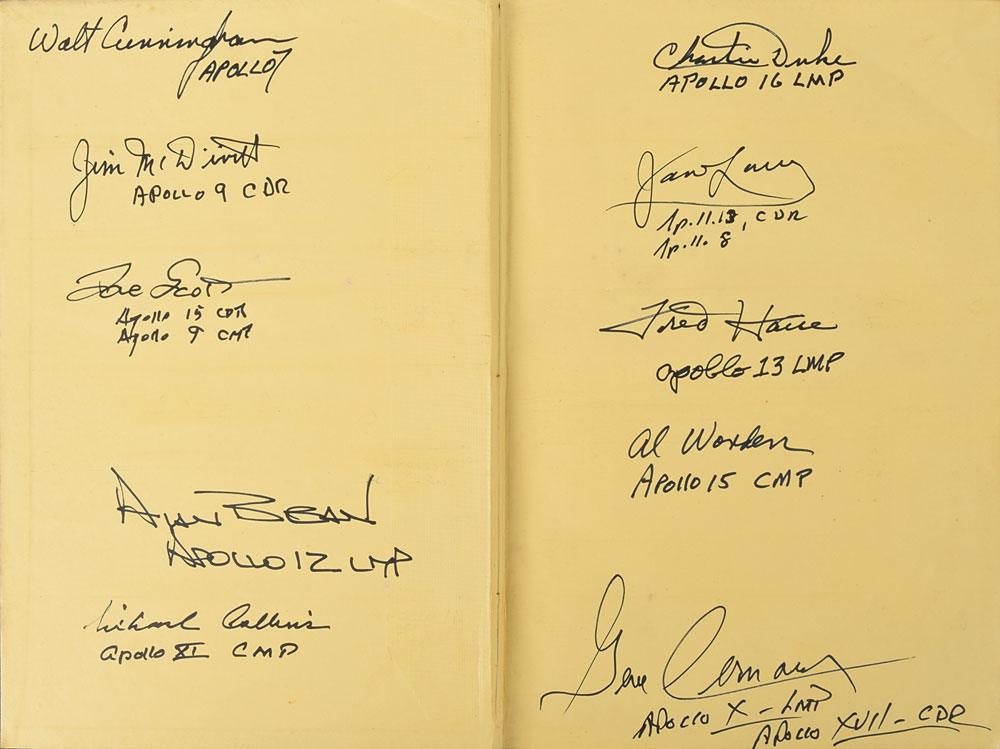 Walt Cunningham
APOLLO 7
Jim McDivitt
APOLLO 9 CDR
Dave Scott
Apollo 15 CDR
Apollo 9 CMP
Alan BEAN
APOLLO 12 LMP
Michael Collins
Apollo XI CMP
Charlie Duke
APOLLO 16 LMP
James Lovell
Apollo 13, CDR
Apollo 8
Fred Haise
Apollo 13 LMP
Al Worden
Apollo 15 CMP
Gene Cernan
APOLLO X - LMP
APOLLO XVII - CDR